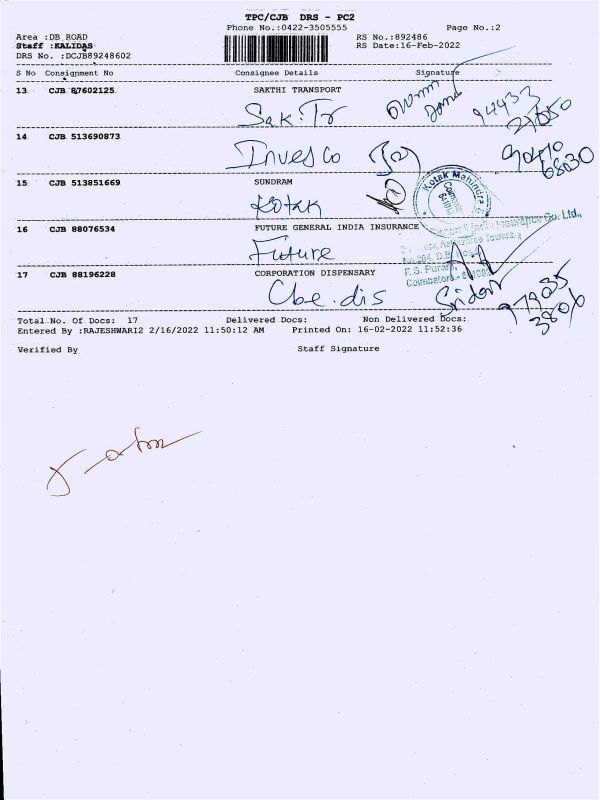 TPC/CJB DRS - PC2
Phone No.:0422-3505555 Page No.:2
Area :DB ROAD RS No.:892486
Staff :KALIDAS RS Date:16-Feb-2022
DRS No. :DCJB89248602
S No Consignment No Consignee Details Signature
13 CJB 87602125 SAKTHI TRANSPORT
Sak. Tr 94433
14 CJB 513690873
Invesco
68030
15 CJB 513851669 SUNDRAM
Kotak
Kotak Mahindra
16 CJB 88076534 FUTURE GENERAL INDIA INSURANCE
Insurance Co. Ltd.,
Future
17 CJB 88196228 CORPORATION DISPENSARY
Coimbatore
Cbe. dis
Total No. Of Docs: 17 Delivered Docs: Non Delivered Docs:
Entered By :RAJESHWARI2 2/16/2022 11:50:12 AM Printed On: 16-02-2022 11:52:36
Verified By Staff Signature